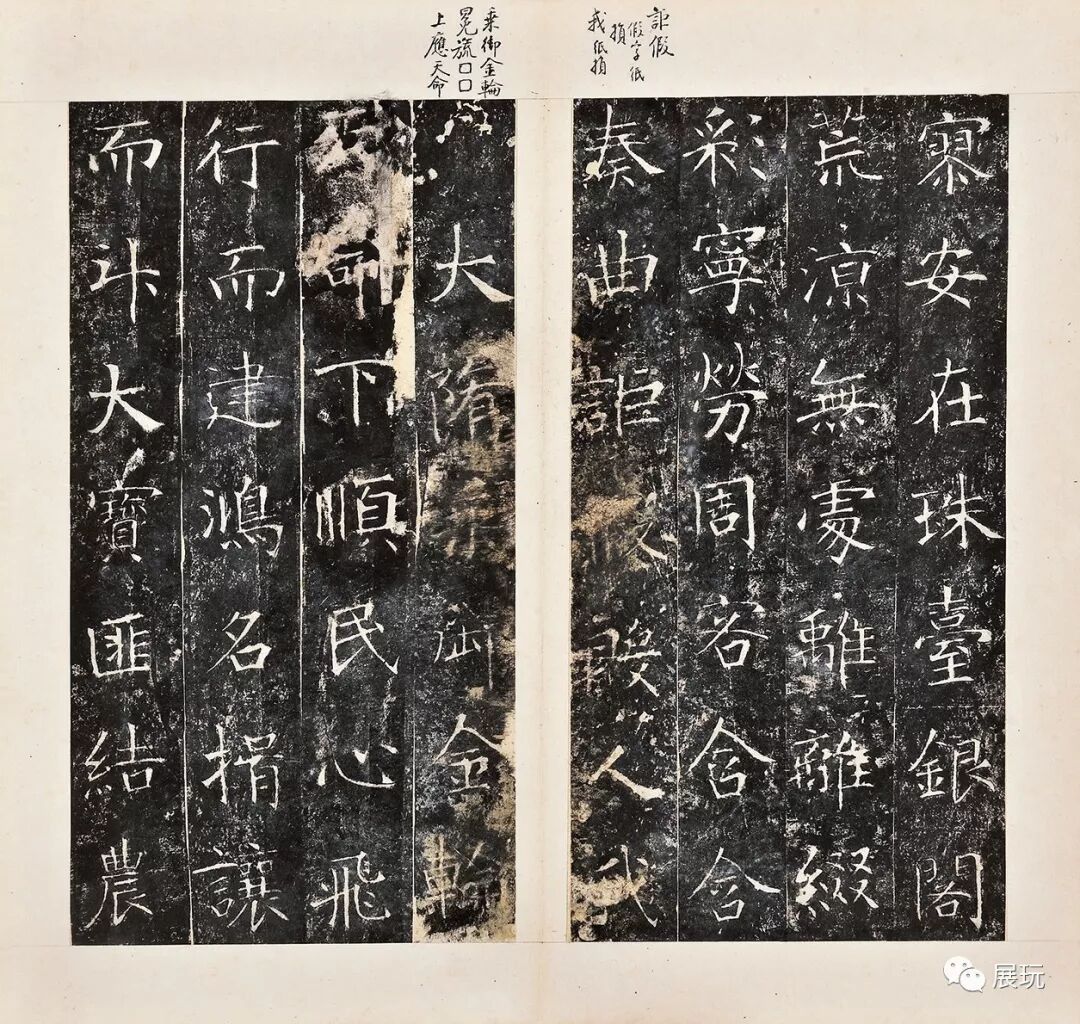 詎假
假字紙
損
我紙損
寮安在珠臺銀閣
荒涼無處離離綴
彩寧勞周容含含
奏曲詎假人我
乘御金輪
冕旒口口
上應天命
大隋乘御金輪
命下順民心飛
行而建鴻名揖讓
而升大寶匪結農
展玩